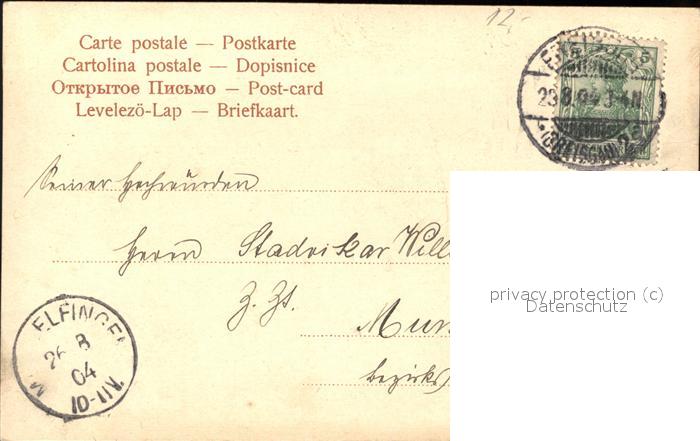 12,-
Carte postale — Postkarte
Cartolina postale — Dopisnice
Открытое Письмо — Post-card
Levelező-Lap — Briefkaart.
5
23.8.04.3-4N.
(BREISGAU)
Seiner Hochwürden
Herrn Stadvikar Will
z. Zt.
Mun
bezirks
ELFINGEN
26 8
04
10-11V.
privacy protection (c)
Datenschutz